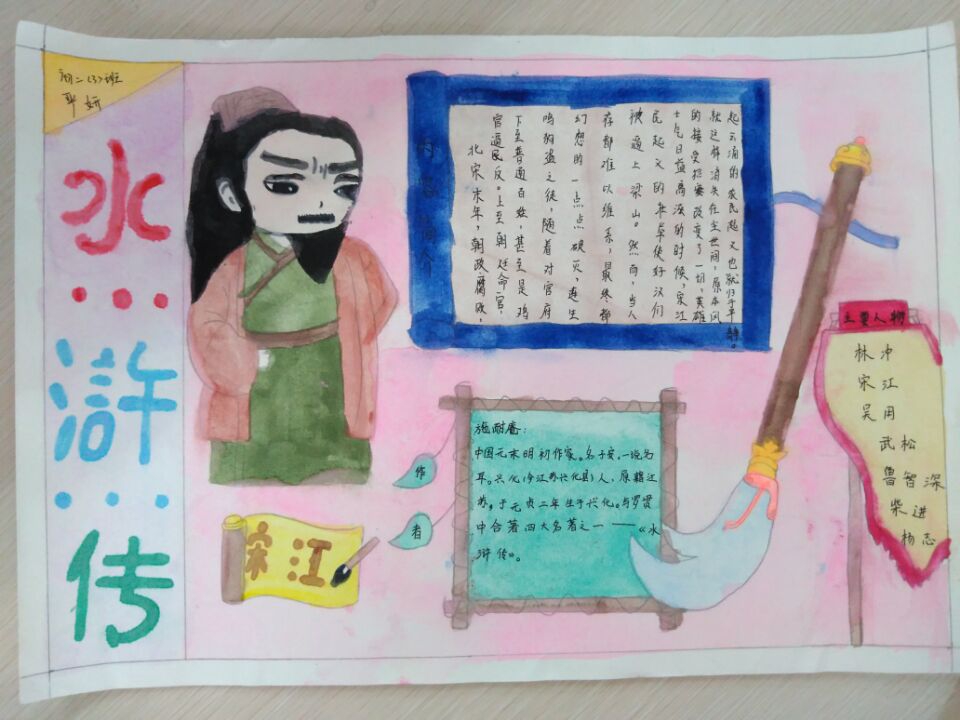 初二(3)班
妍
水
滸
传
简介
北宋末年，朝政腐败，
官逼民反。上至朝廷命官，
下至普通百姓，甚至是鸡
鸣狗盗之徒，随着对官府
幻想的一点点破灭，连生
存都难以维系，最终都
被逼上梁山。然而，当人
民起义的来卓使好汉们
士气日益高涨的时候，宋江
的接受招安改变了一切，英雄
就这样消失在尘世间，原本风
起云涌的农民起义也就归于平静。
作
者
施耐庵：
中国元末明初作家。名子安，一说名
耳。兴化(今江苏兴化县)人，原籍江
苏，于元贞二年生于兴化。与罗贯
中合著四大名著之一——《水
浒传》。
宋江
主要人物
林冲
宋江
吴用
武松
鲁智深
柴进
杨志